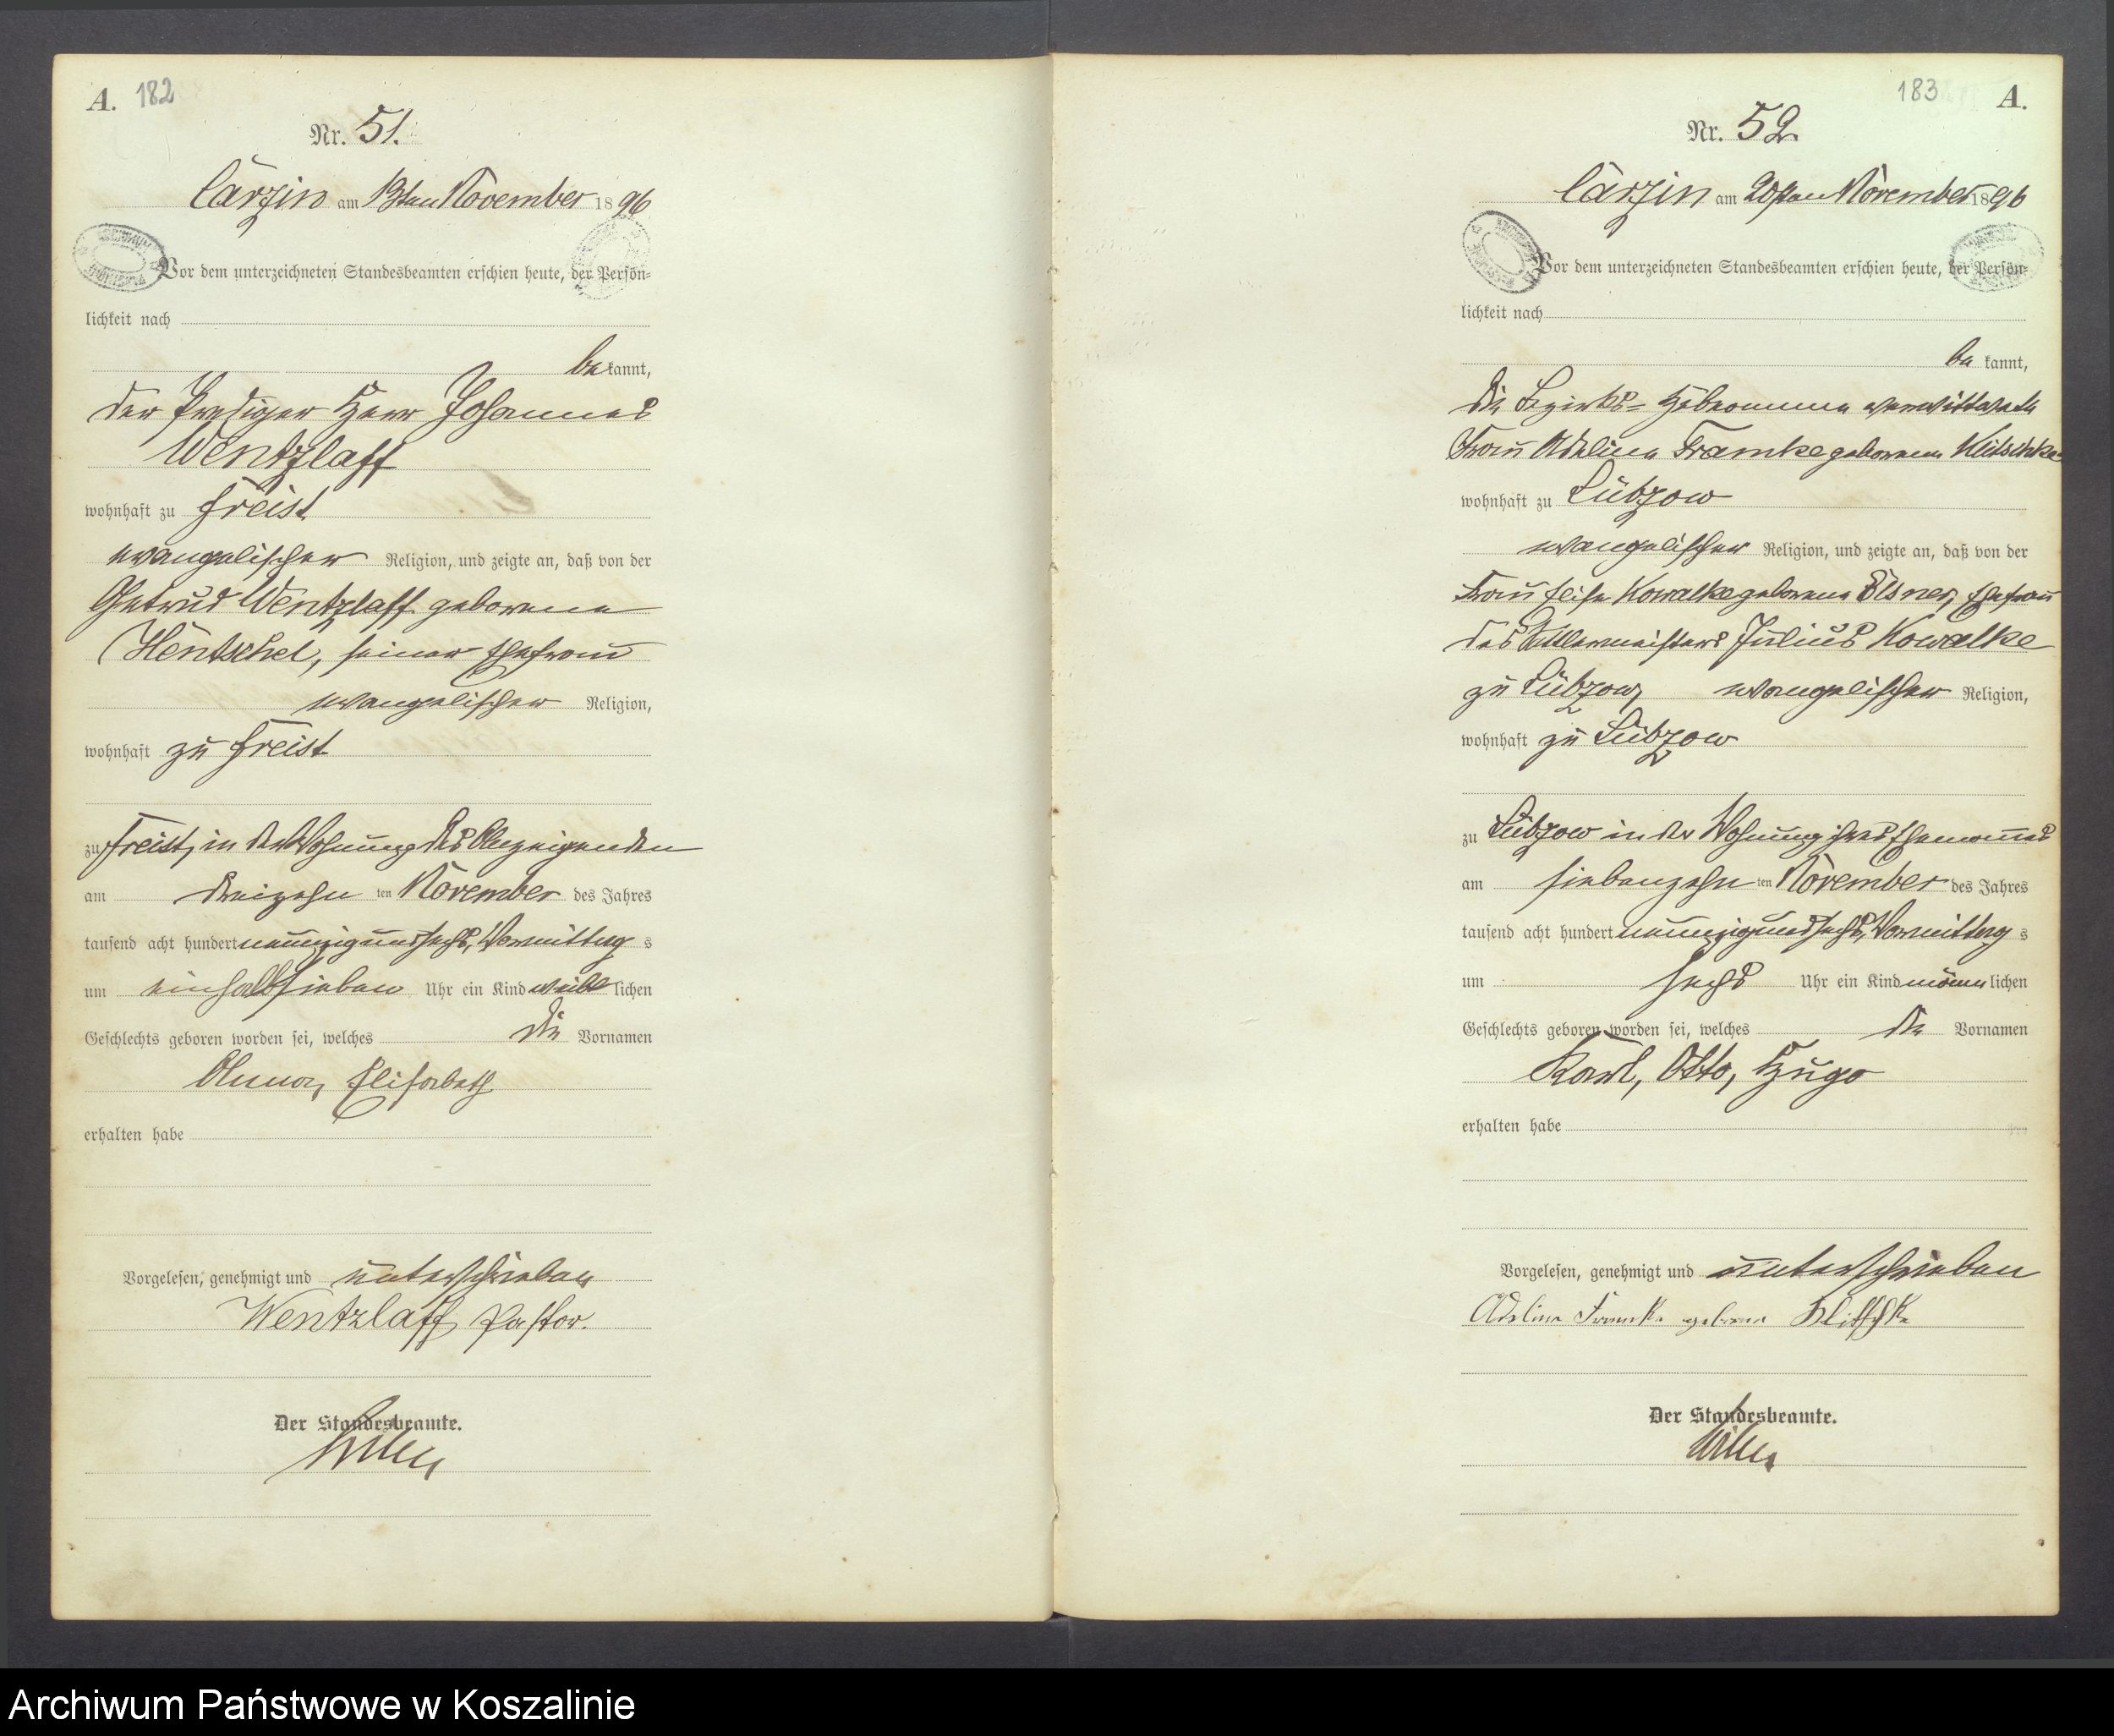 A. 182
Nr. 51.
Carzin am 13ten November 1896
Vor dem unterzeichneten Standesbeamten erschien heute, der Persön-
lichkeit nach
be kannt,
der Prediger Herr Johannes
Wentzlaff
wohnhaft zu Freist
evangelischer Religion, und zeigte an, daß von der
Getrud Wentzlaff geborene
Hentschel, seiner Ehefrau
evangelischer Religion,
wohnhaft zu Freist
zu Freist, in der Wohnung des Anzeigenden
am dreizehn ten November des Jahres
tausend acht hundert neunzig und sechs, Vormittag s
um einhalb sieben Uhr ein Kind weib lichen
Geschlechts geboren worden sei, welches die Vornamen
Anna, Elisabeth
erhalten habe
Vorgelesen, genehmigt und unterschrieben
Wentzlaff Pastor.
Der Standesbeamte.
183 A.
Nr. 52
Carzin am 20sten November 1896
Vor dem unterzeichneten Standesbeamten erschien heute, der Persön-
lichkeit nach
be kannt,
die Bezirks-Hebeamme verwittwete
Frau Adeline Framke geborene Klitschke
wohnhaft zu Lübzow
evangelischer Religion, und zeigte an, daß von der
Frau Elise Kowalke geborene Ölsner, Ehefrau
des Julius Kowalke
zu Lübzow, evangelischer Religion,
wohnhaft zu Lübzow
zu Lübzow in der Wohnung ihres Ehemannes
am siebenzehn ten November des Jahres
tausend acht hundert neunzig und sechs, Vormittag s
um sechs Uhr ein Kind männ lichen
Geschlechts geboren worden sei, welches die Vornamen
Karl, Otto, Hugo
erhalten habe
Vorgelesen, genehmigt und unterschrieben
Adeline Framke geborne Klitschke
Der Standesbeamte.
Archiwum Państwowe w Koszalinie